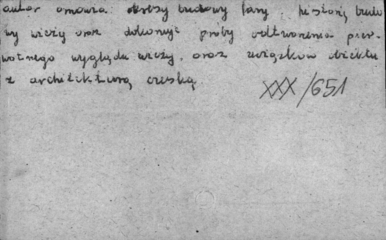 autor omawia okresy budowy fary, historię budo
wy wieży oraz dokonuje próby odtworzenia pier-
wotnego wyglądu wieży, oraz związków obiektu
z architekturą czeską.
XXX/651